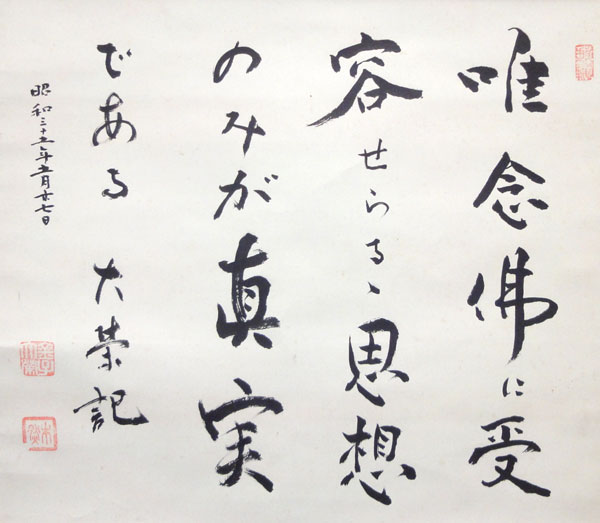 唯念佛に受
容せらるゝ思想
のみが真実
である 大榮記
昭和三十五年五月廿七日